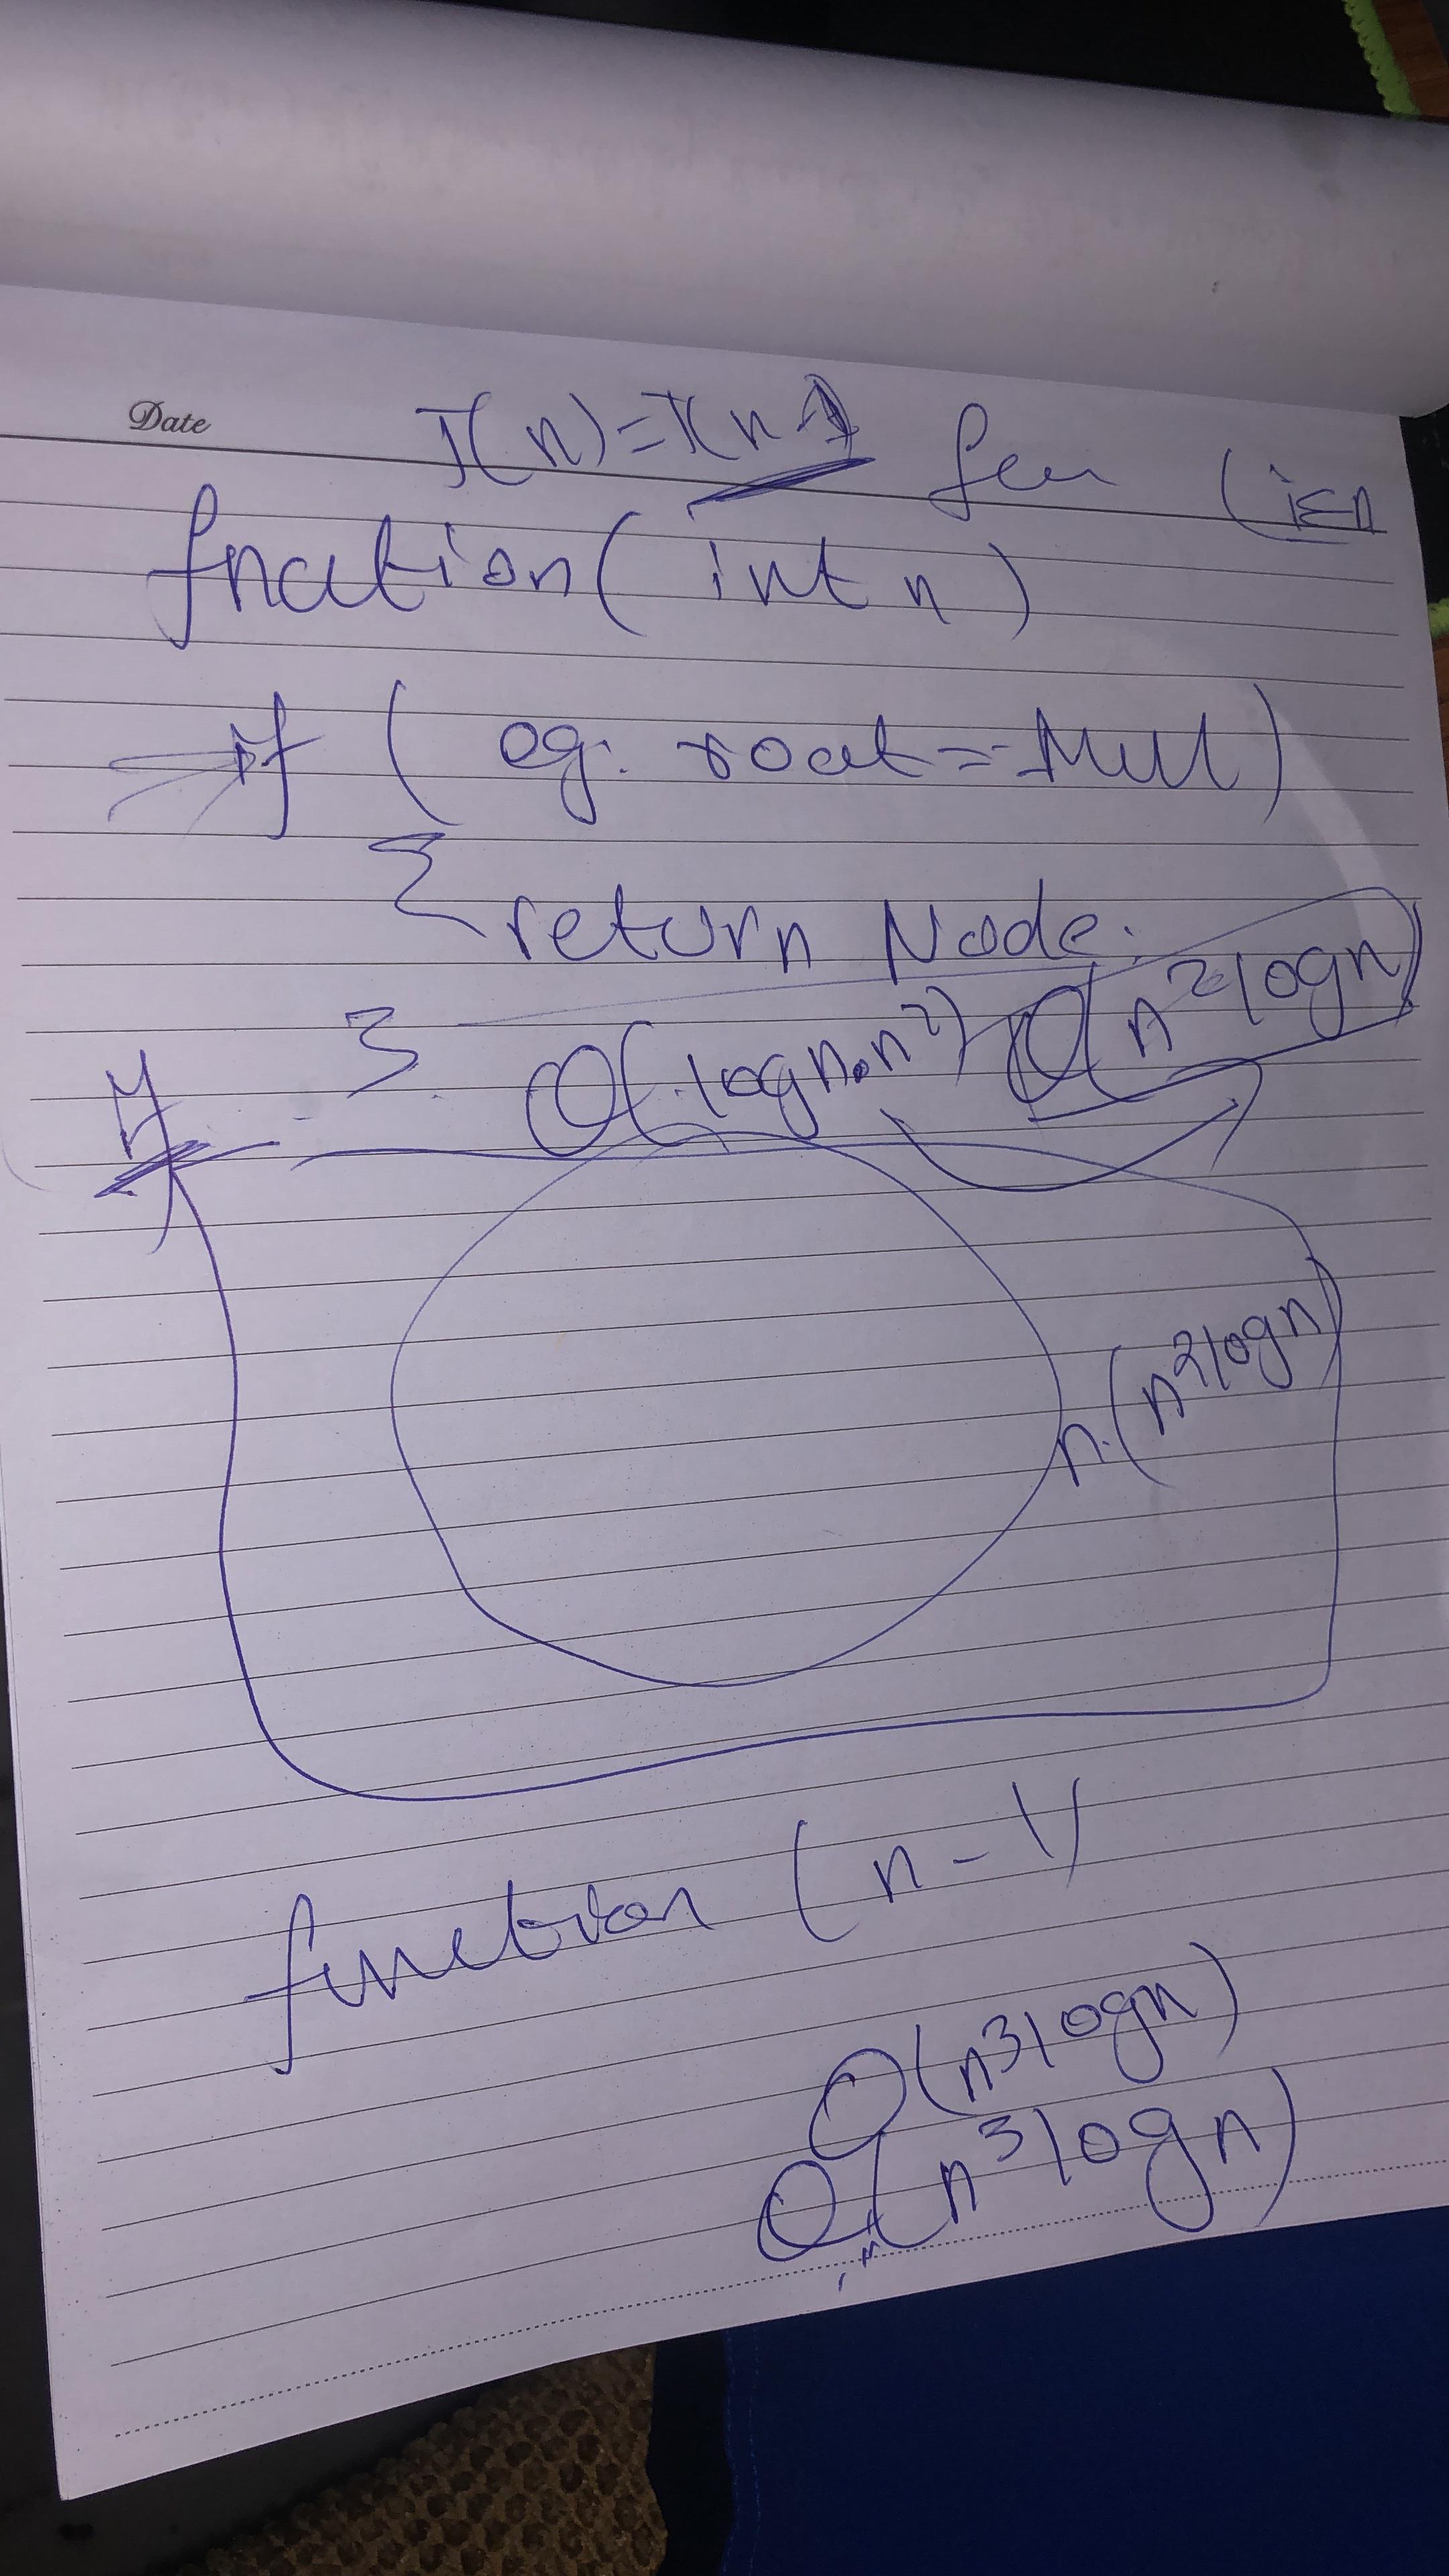 Date
T(n)=T(n-1) (i≤n
fnction( int n)
if ( eg. root == Null)
{
return Node.
}
O(logn.n²) O(n²logn)
if
n.(n²logn)
function (n-1)
O(n³logn)
O(n³logn)